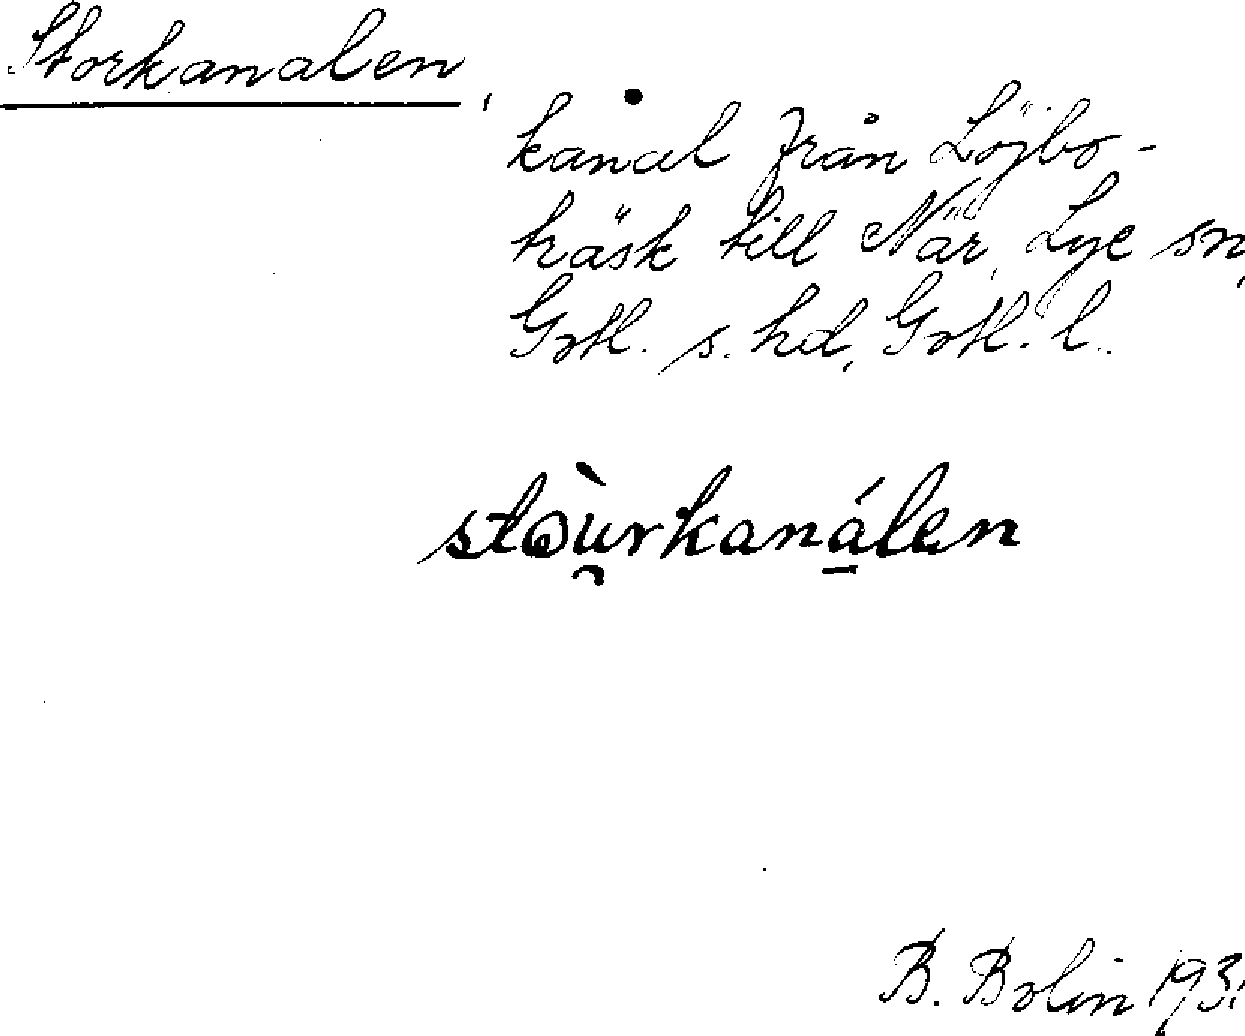 Storkanalen,
kanal från Löjbo-
träsk till När, Lye sn,
Gotl. s. hd, Gotl. l.
stòu̯rkaná̲len
B. Bolin 193